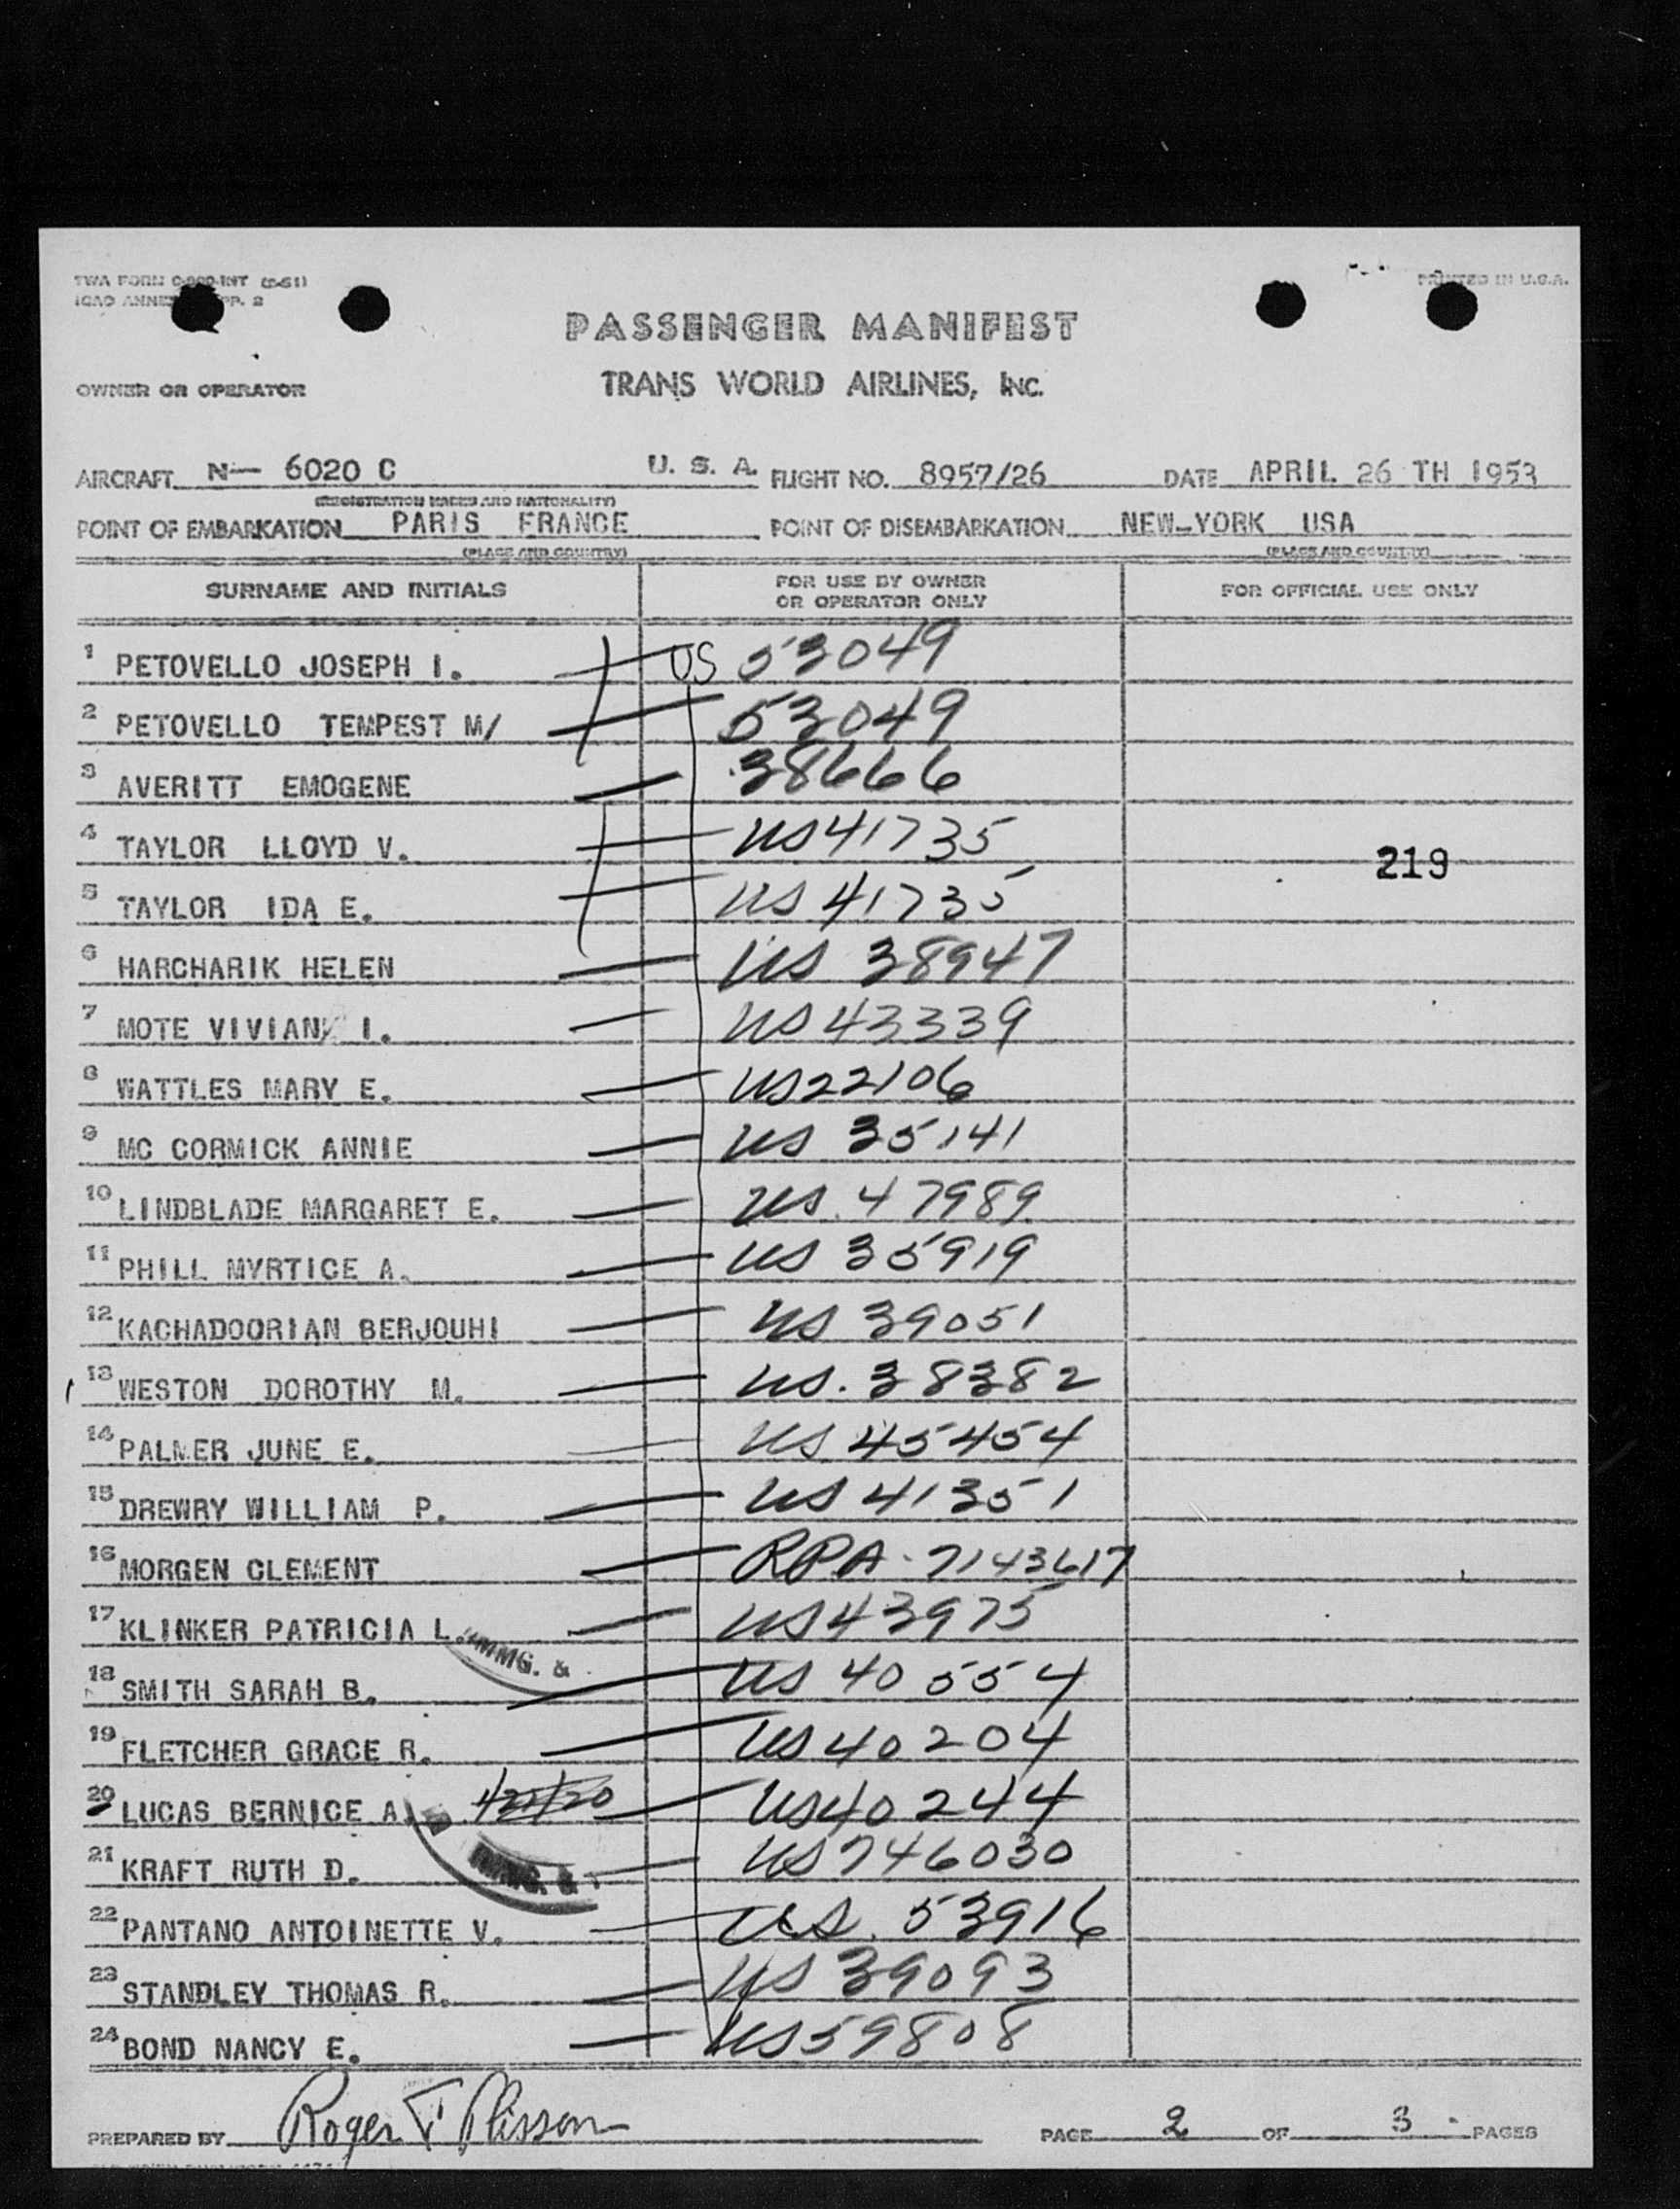 TWA FORM INT (2-51) PRINTED IN U.S.A.
ICAO ANNEX PP. 2
PASSENGER MANIFEST
OWNER OR OPERATOR TRANS WORLD AIRLINES, INC.
AIRCRAFT N— 6020 C U. S. A. FLIGHT NO. 8957/26 DATE APRIL 26 TH 1953
(REGISTRATION MARKS AND NATIONALITY)
POINT OF EMBARKATION PARIS FRANCE POINT OF DISEMBARKATION NEW-YORK USA
(PLACE AND COUNTRY) (PLACE AND COUNTRY)
SURNAME AND INITIALS FOR USE BY OWNER OR OPERATOR ONLY FOR OFFICIAL USE ONLY
1 PETOVELLO JOSEPH I. US 53049
2 PETOVELLO TEMPEST M/ 53049
3 AVERITT EMOGENE 38666
4 TAYLOR LLOYD V. US 41735
219
5 TAYLOR IDA E. US 41735
6 HARCHARIK HELEN US 38947
7 MOTE VIVIAN I. US 43339
8 WATTLES MARY E. US 22106
9 MC CORMICK ANNIE US 35141
10 LINDBLADE MARGARET E. US 47989
11 PHILL MYRTICE A. US 35919
12 KACHADOORIAN BERJOUHI US 39051
13 WESTON DOROTHY M. US. 38382
14 PALMER JUNE E. US 45454
15 DREWRY WILLIAM P. US 41351
16 MORGEN CLEMENT RPA-7143617
17 KLINKER PATRICIA L. US 43975
IMMG. &
18 SMITH SARAH B. US 40554
19 FLETCHER GRACE R. US 40204
20 LUCAS BERNICE A. US 40244
21 KRAFT RUTH D. US 746030
IMMG. &
22 PANTANO ANTOINETTE V. US. 53916
23 STANDLEY THOMAS R. US 39093
24 BOND NANCY E. US 59808
PREPARED BY Roger F Plisson PAGE 2 OF 3 PAGES